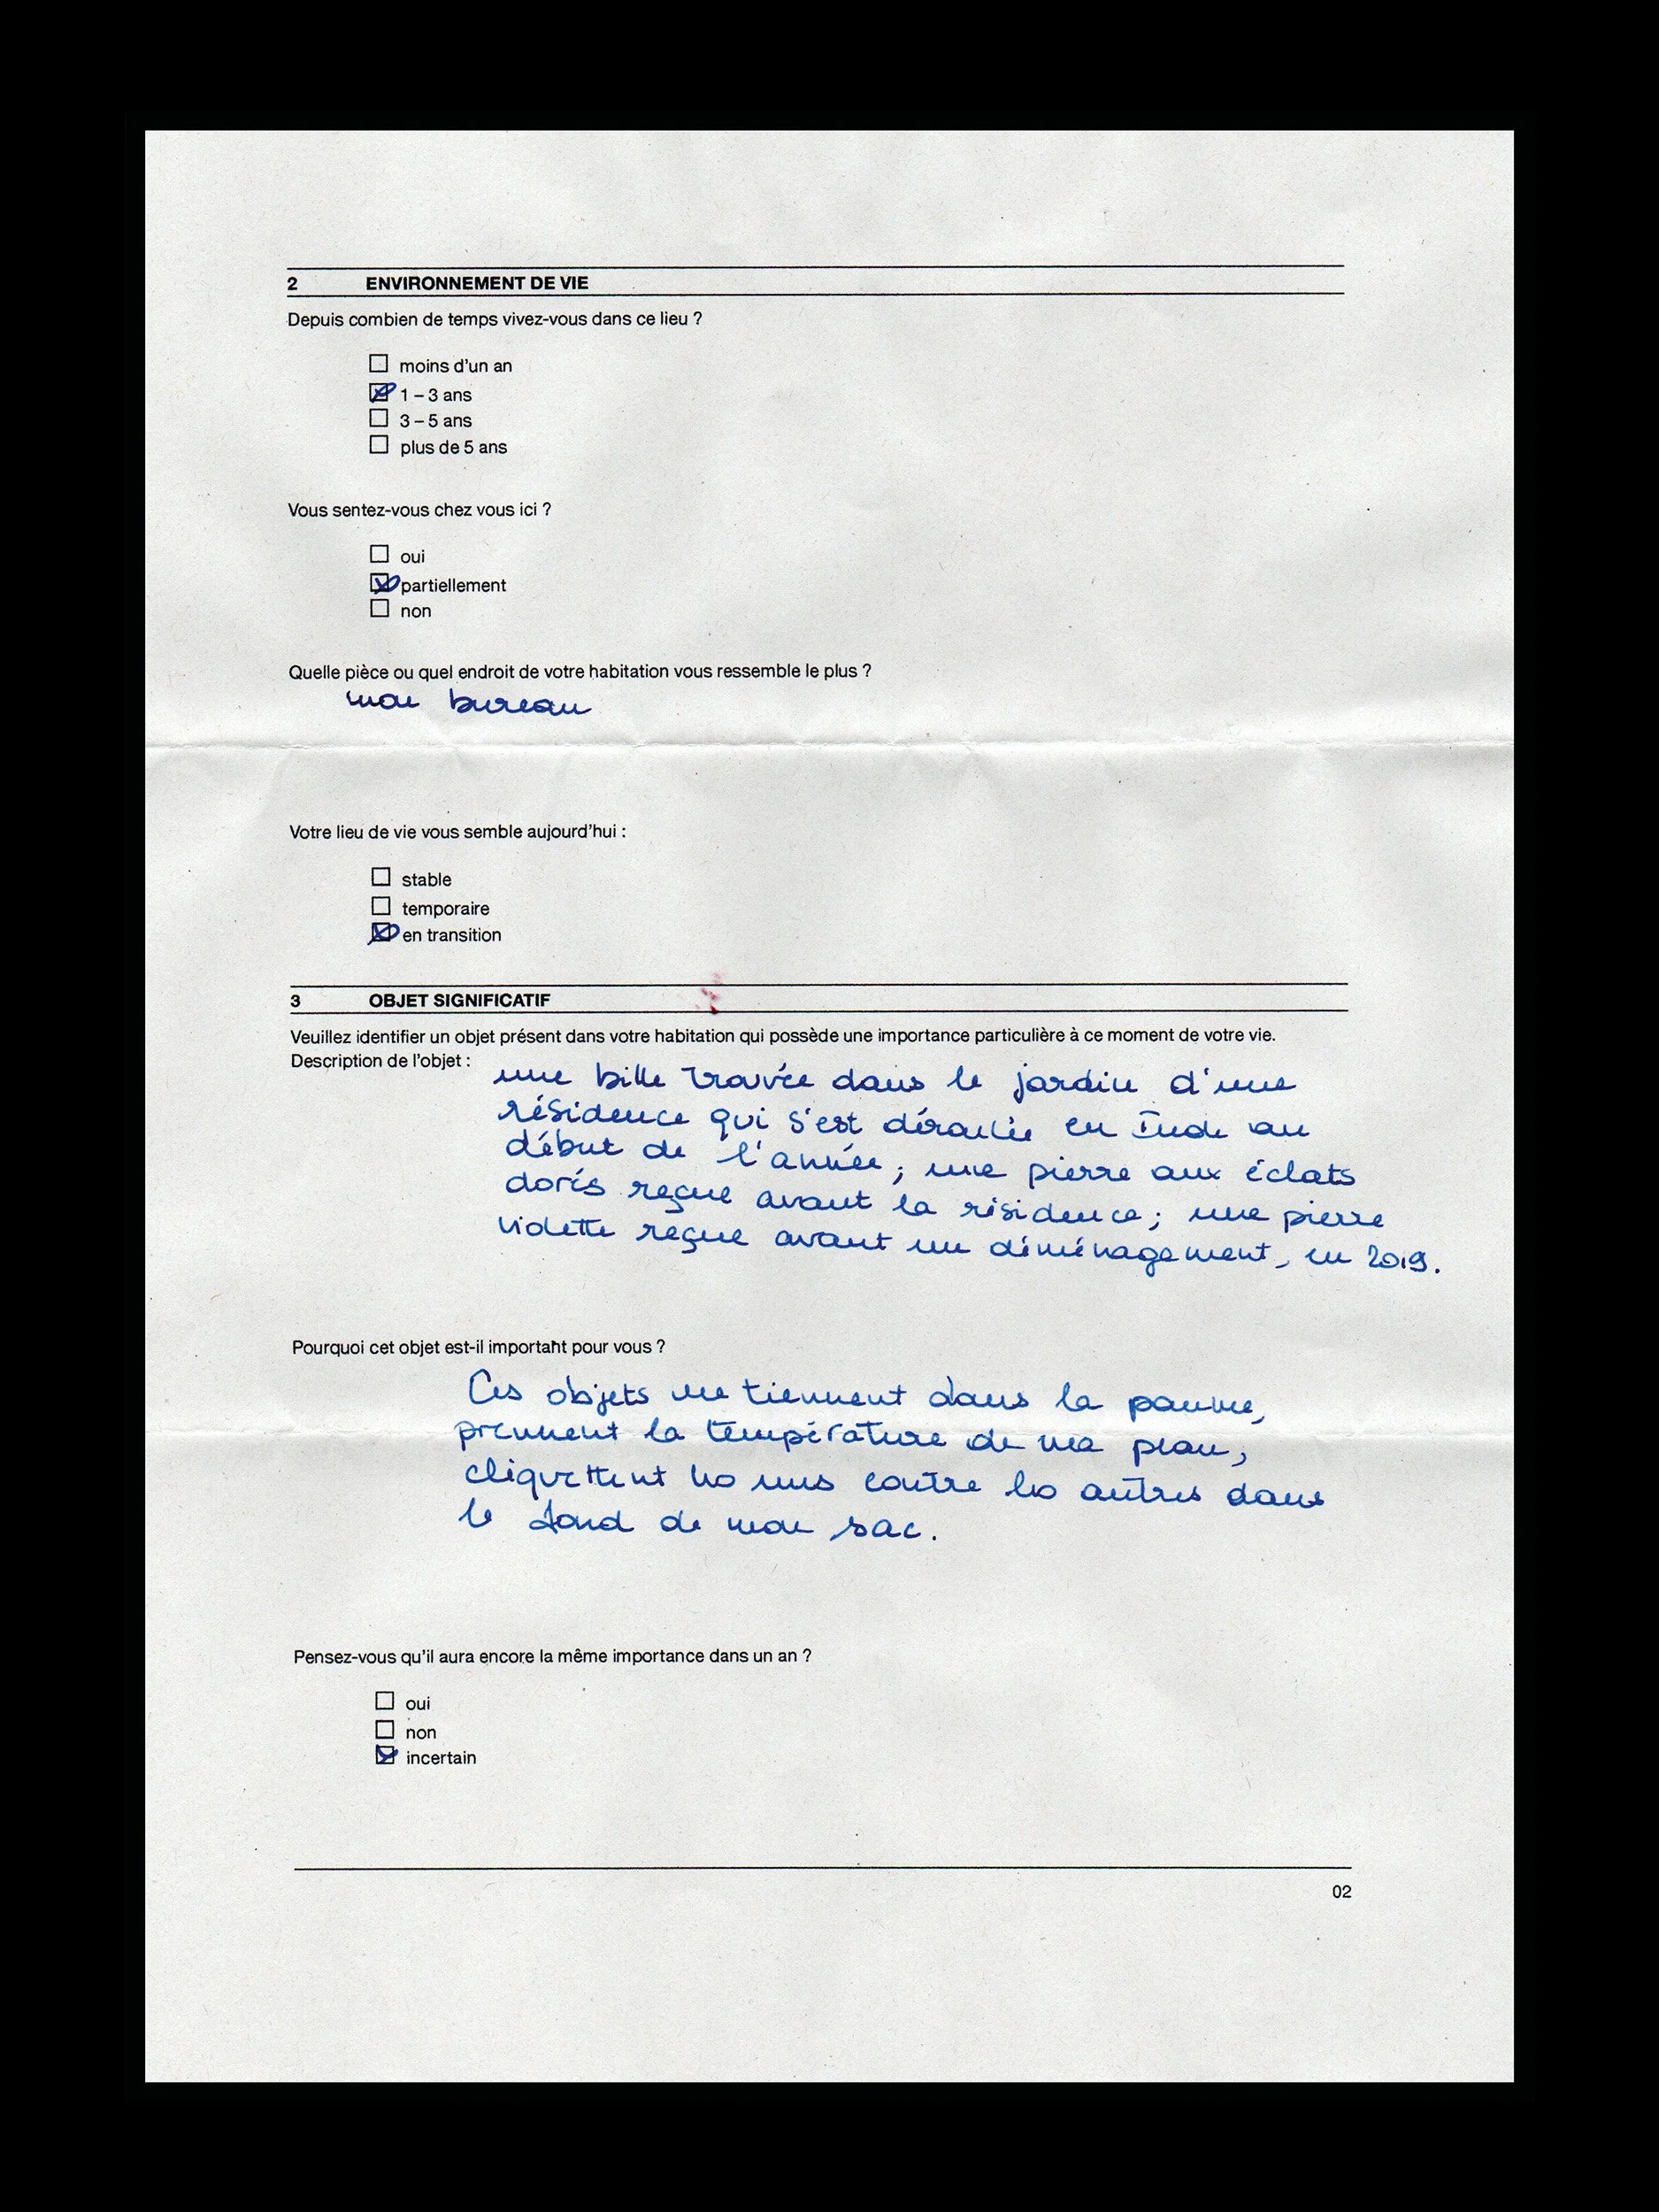 2 ENVIRONNEMENT DE VIE
Depuis combien de temps vivez-vous dans ce lieu ?
moins d'un an
1 – 3 ans
3 – 5 ans
plus de 5 ans
Vous sentez-vous chez vous ici ?
oui
partiellement
non
Quelle pièce ou quel endroit de votre habitation vous ressemble le plus ?
mon bureau
Votre lieu de vie vous semble aujourd'hui :
stable
temporaire
en transition
3 OBJET SIGNIFICATIF
Veuillez identifier un objet présent dans votre habitation qui possède une importance particulière à ce moment de votre vie.
Description de l'objet :
une bille trouvée dans le jardin d'une
résidence qui s'est déroulée en Inde au
début de l'année ; une pierre aux éclats
dorés reçue avant la résidence ; une pierre
violette reçue avant un déménagement, en 2019.
Pourquoi cet objet est-il important pour vous ?
Ces objets me tiennent dans la paume,
prennent la température de ma peau,
cliquettent les uns contre les autres dans
le fond de mon sac.
Pensez-vous qu'il aura encore la même importance dans un an ?
oui
non
incertain
02